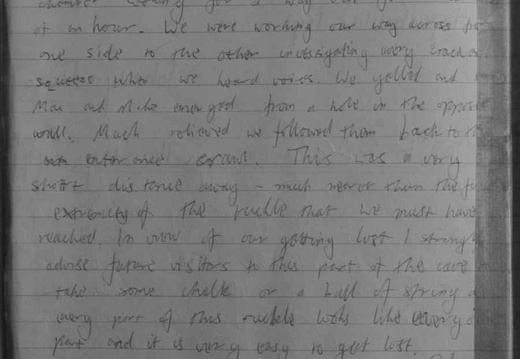 chamber looking for a way out for
of an hour. We were working our way across from
one side to the other investigating every crack and
squeeze when we heard voices. We yelled and
Max and Mike emerged from a hole in the opposite
wall. Much relieved we followed them back to the
entrance crawl. This was a very
short distance away - much nearer than the
extremity of the ruckle that we must have
reached. In view of our getting lost I strongly
advise future visitors to this part of the cave
take some chalk or a ball of string
every part of this ruckle looks like every
part and it is very easy to get lost.